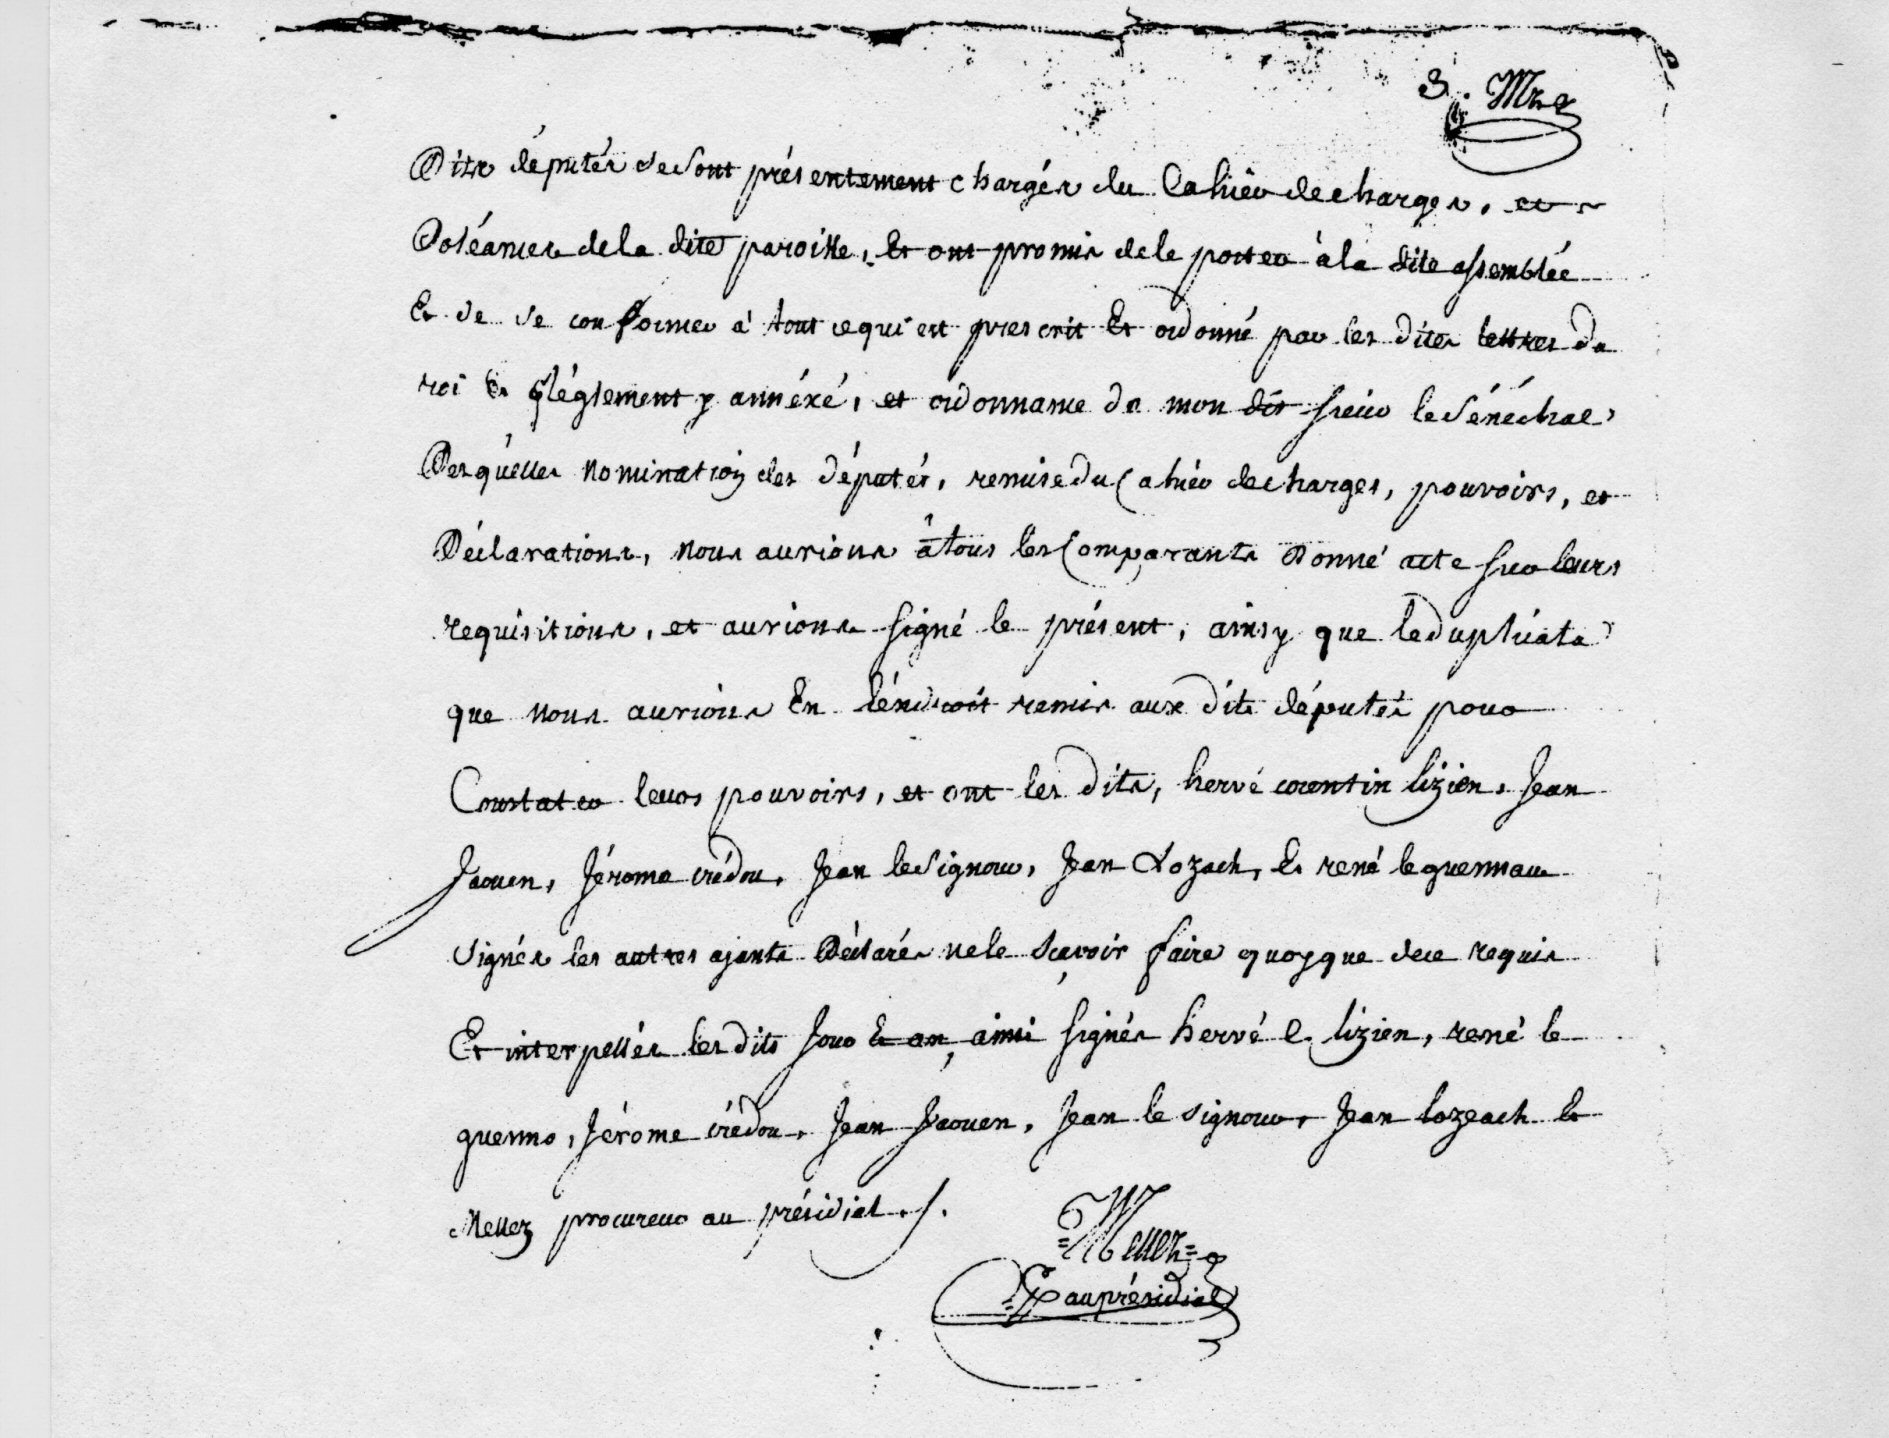 3. Mr
Dits députés se sont présentement chargés du Cahier de charges, et
Doléances de la dite paroisse, Et ont promis de le porter à la dite assemblée
Et de se conformer à tout ce qui est prescrit Et ordonné par les dites lettres du
roi Et réglement y annéxé, et ordonnance de mon dit sieur le sénéchal
Desquelles nomination des députés, remise du Cahier de charges, pouvoirs, et
Déclarations, nous aurions à tous les Comparants Donné acte sur leurs
requisitions, et aurions signé le présent, ainsy que le duplicata
que nous aurions En l'endroit remis aux dits députés pour
Constater leurs pouvoirs, et ont les dits, hervé corentin lizien, Jean
Jaouen, Jérome crédou, Jean le signour, Jean Lozach, Et rené le guennau
signés les autres ajants Déclarés ne le sçavoir faire quoyque de ce requis
Et interpellés les dits Jour Et an, ainsi signés hervé C. lizien, rené le
guenno, Jérome crédou, Jean Jaouen, Jean le signour, Jean lozeach Et
Mellez procureur au présidial ./.
=Mellez=
au présidial